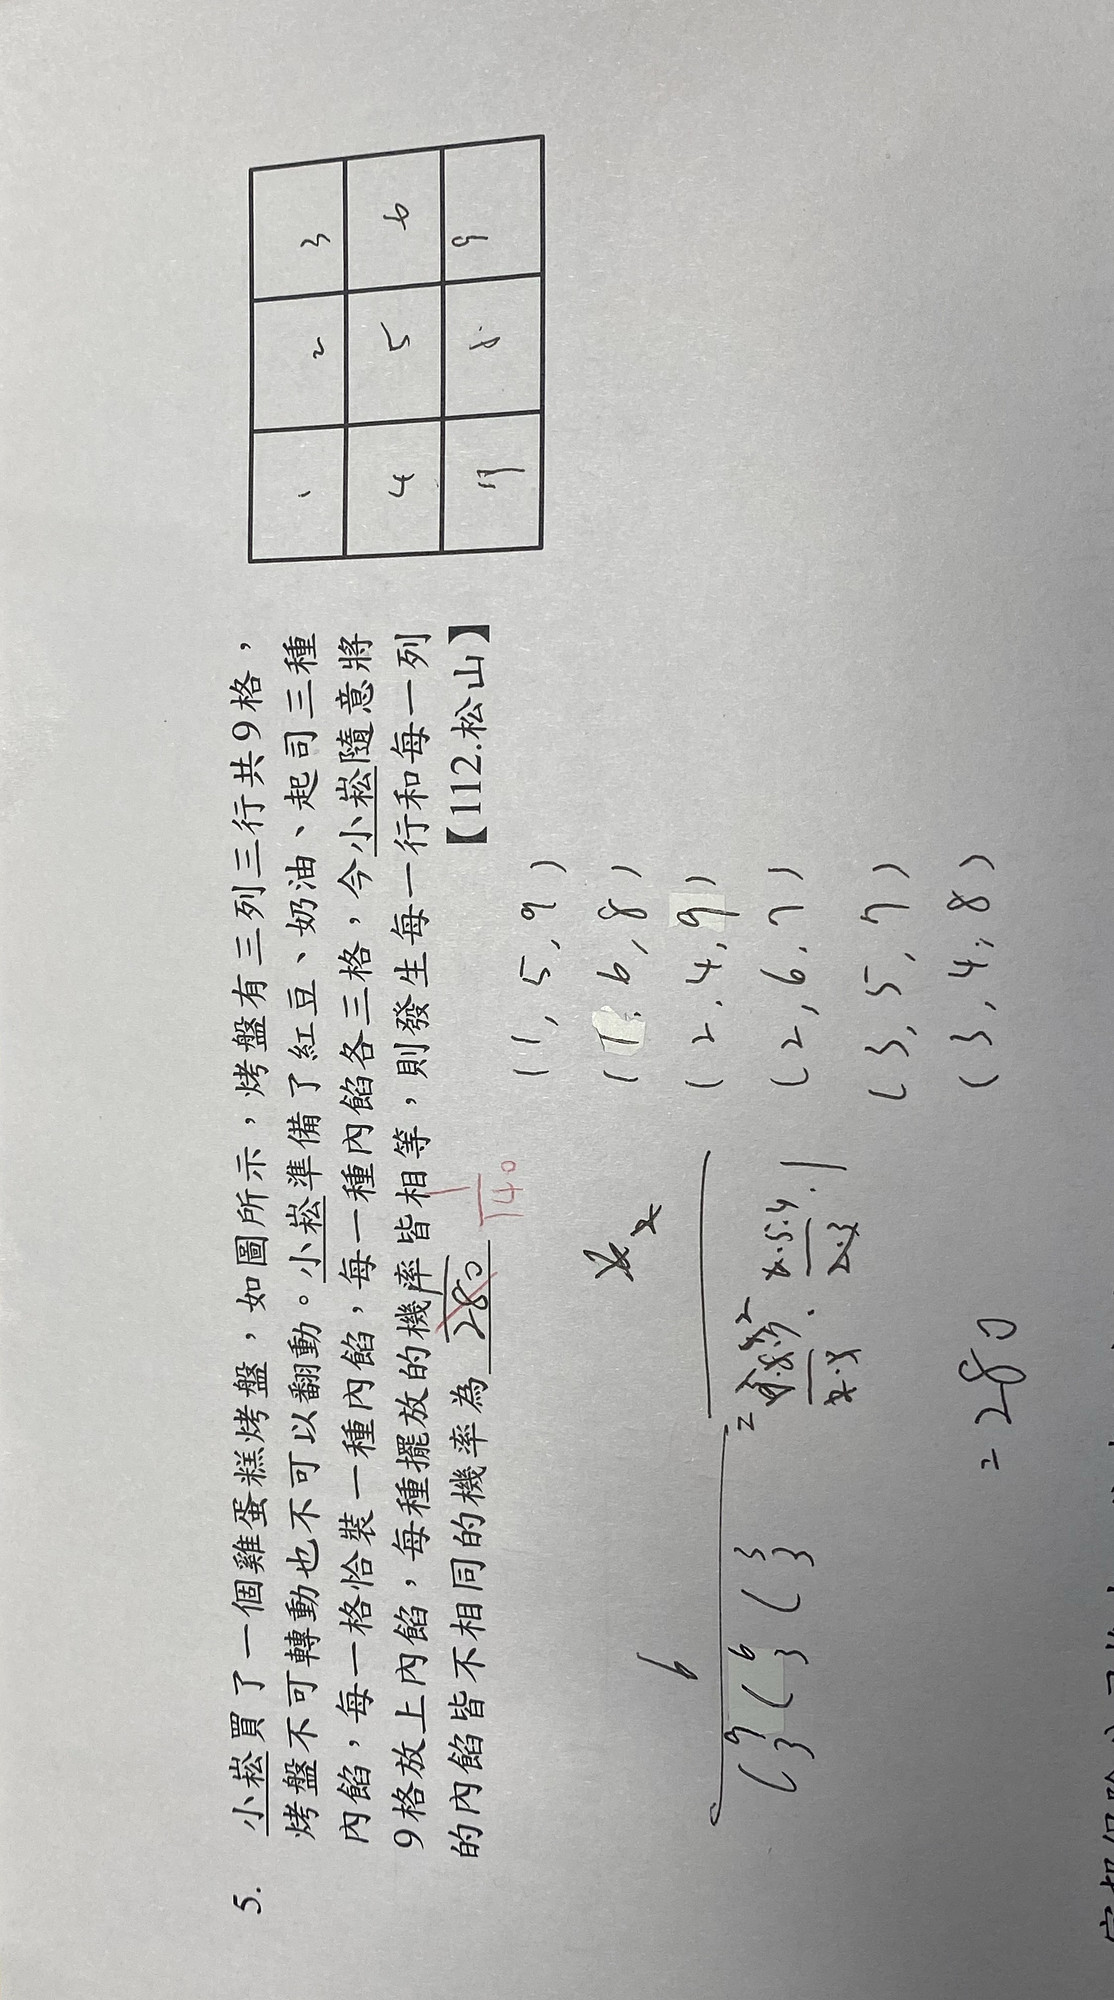 5. 小崧買了一個雞蛋糕烤盤，如圖所示，烤盤有三列三行共9格，
烤盤不可轉動也不可以翻動。小崧準備了紅豆、奶油、起司三種
內餡，每一格恰裝一種內餡，每一種內餡各三格，今小崧隨意將
9格放上內餡，每種擺放的機率皆相等，則發生每一行和每一列
的內餡皆不相同的機率為 280
1
140
【112.松山】
1 2 3
4 5 6
7 8 9
(1, 5, 9)
(1, 6, 8)
(2, 4, 9)
(2, 6, 7)
(3, 5, 7)
(3, 4, 8)
6
C 9 3 C 6 3 C 3 3
= 280